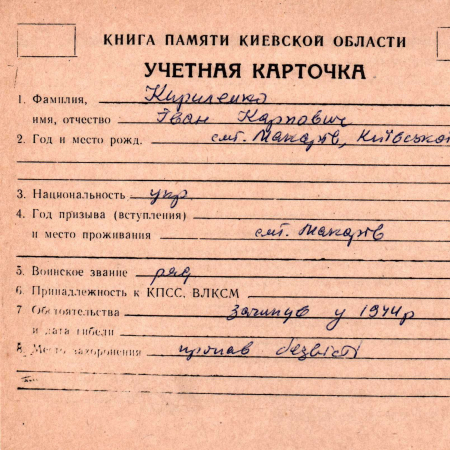 КНИГА ПАМЯТИ КИЕВСКОЙ ОБЛАСТИ
УЧЕТНАЯ КАРТОЧКА
1. Фамилия, Кириленко
имя, отчество Іван Карпович
2. Год и место рожд. смт. Макарів, Київської
3. Национальность укр
4. Год призыва (вступления)
и место проживания смт. Макарів
5. Воинское звание ряд
6. Принадлежность к КПСС, ВЛКСМ
7 Обстоятельства загинув у 1944р
и дата гибели
8. Место захоронения пропав безвісті